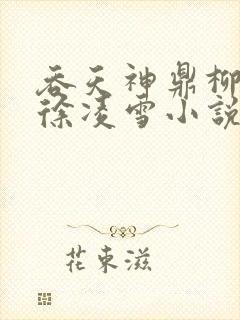 吞天神鼎柳
徐凌雪小說
花東滋